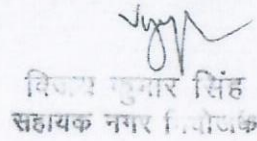 विजय कुमार सिंह
सहायक नगर नियोजक